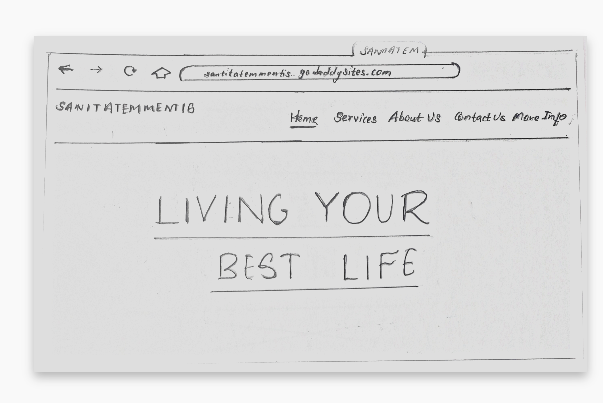 SANITATEM
santitatemmentis.godaddysites.com
SANITATEMMENTIB
Home Services About Us Contact Us More Info
LIVING YOUR
BEST LIFE